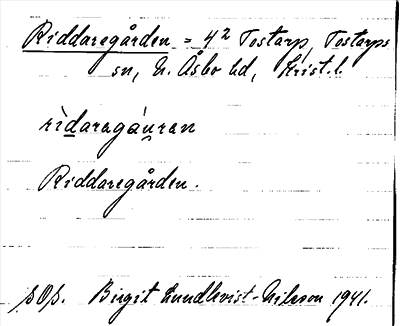 Riddaregården = 4² Tostarp, Tostarps
sn, N. Åsbo hd, Krist. l.
rìdaragáu̯ran
Riddaregården.
sOs. Birgit Lundkvist-Nilsson 1941.